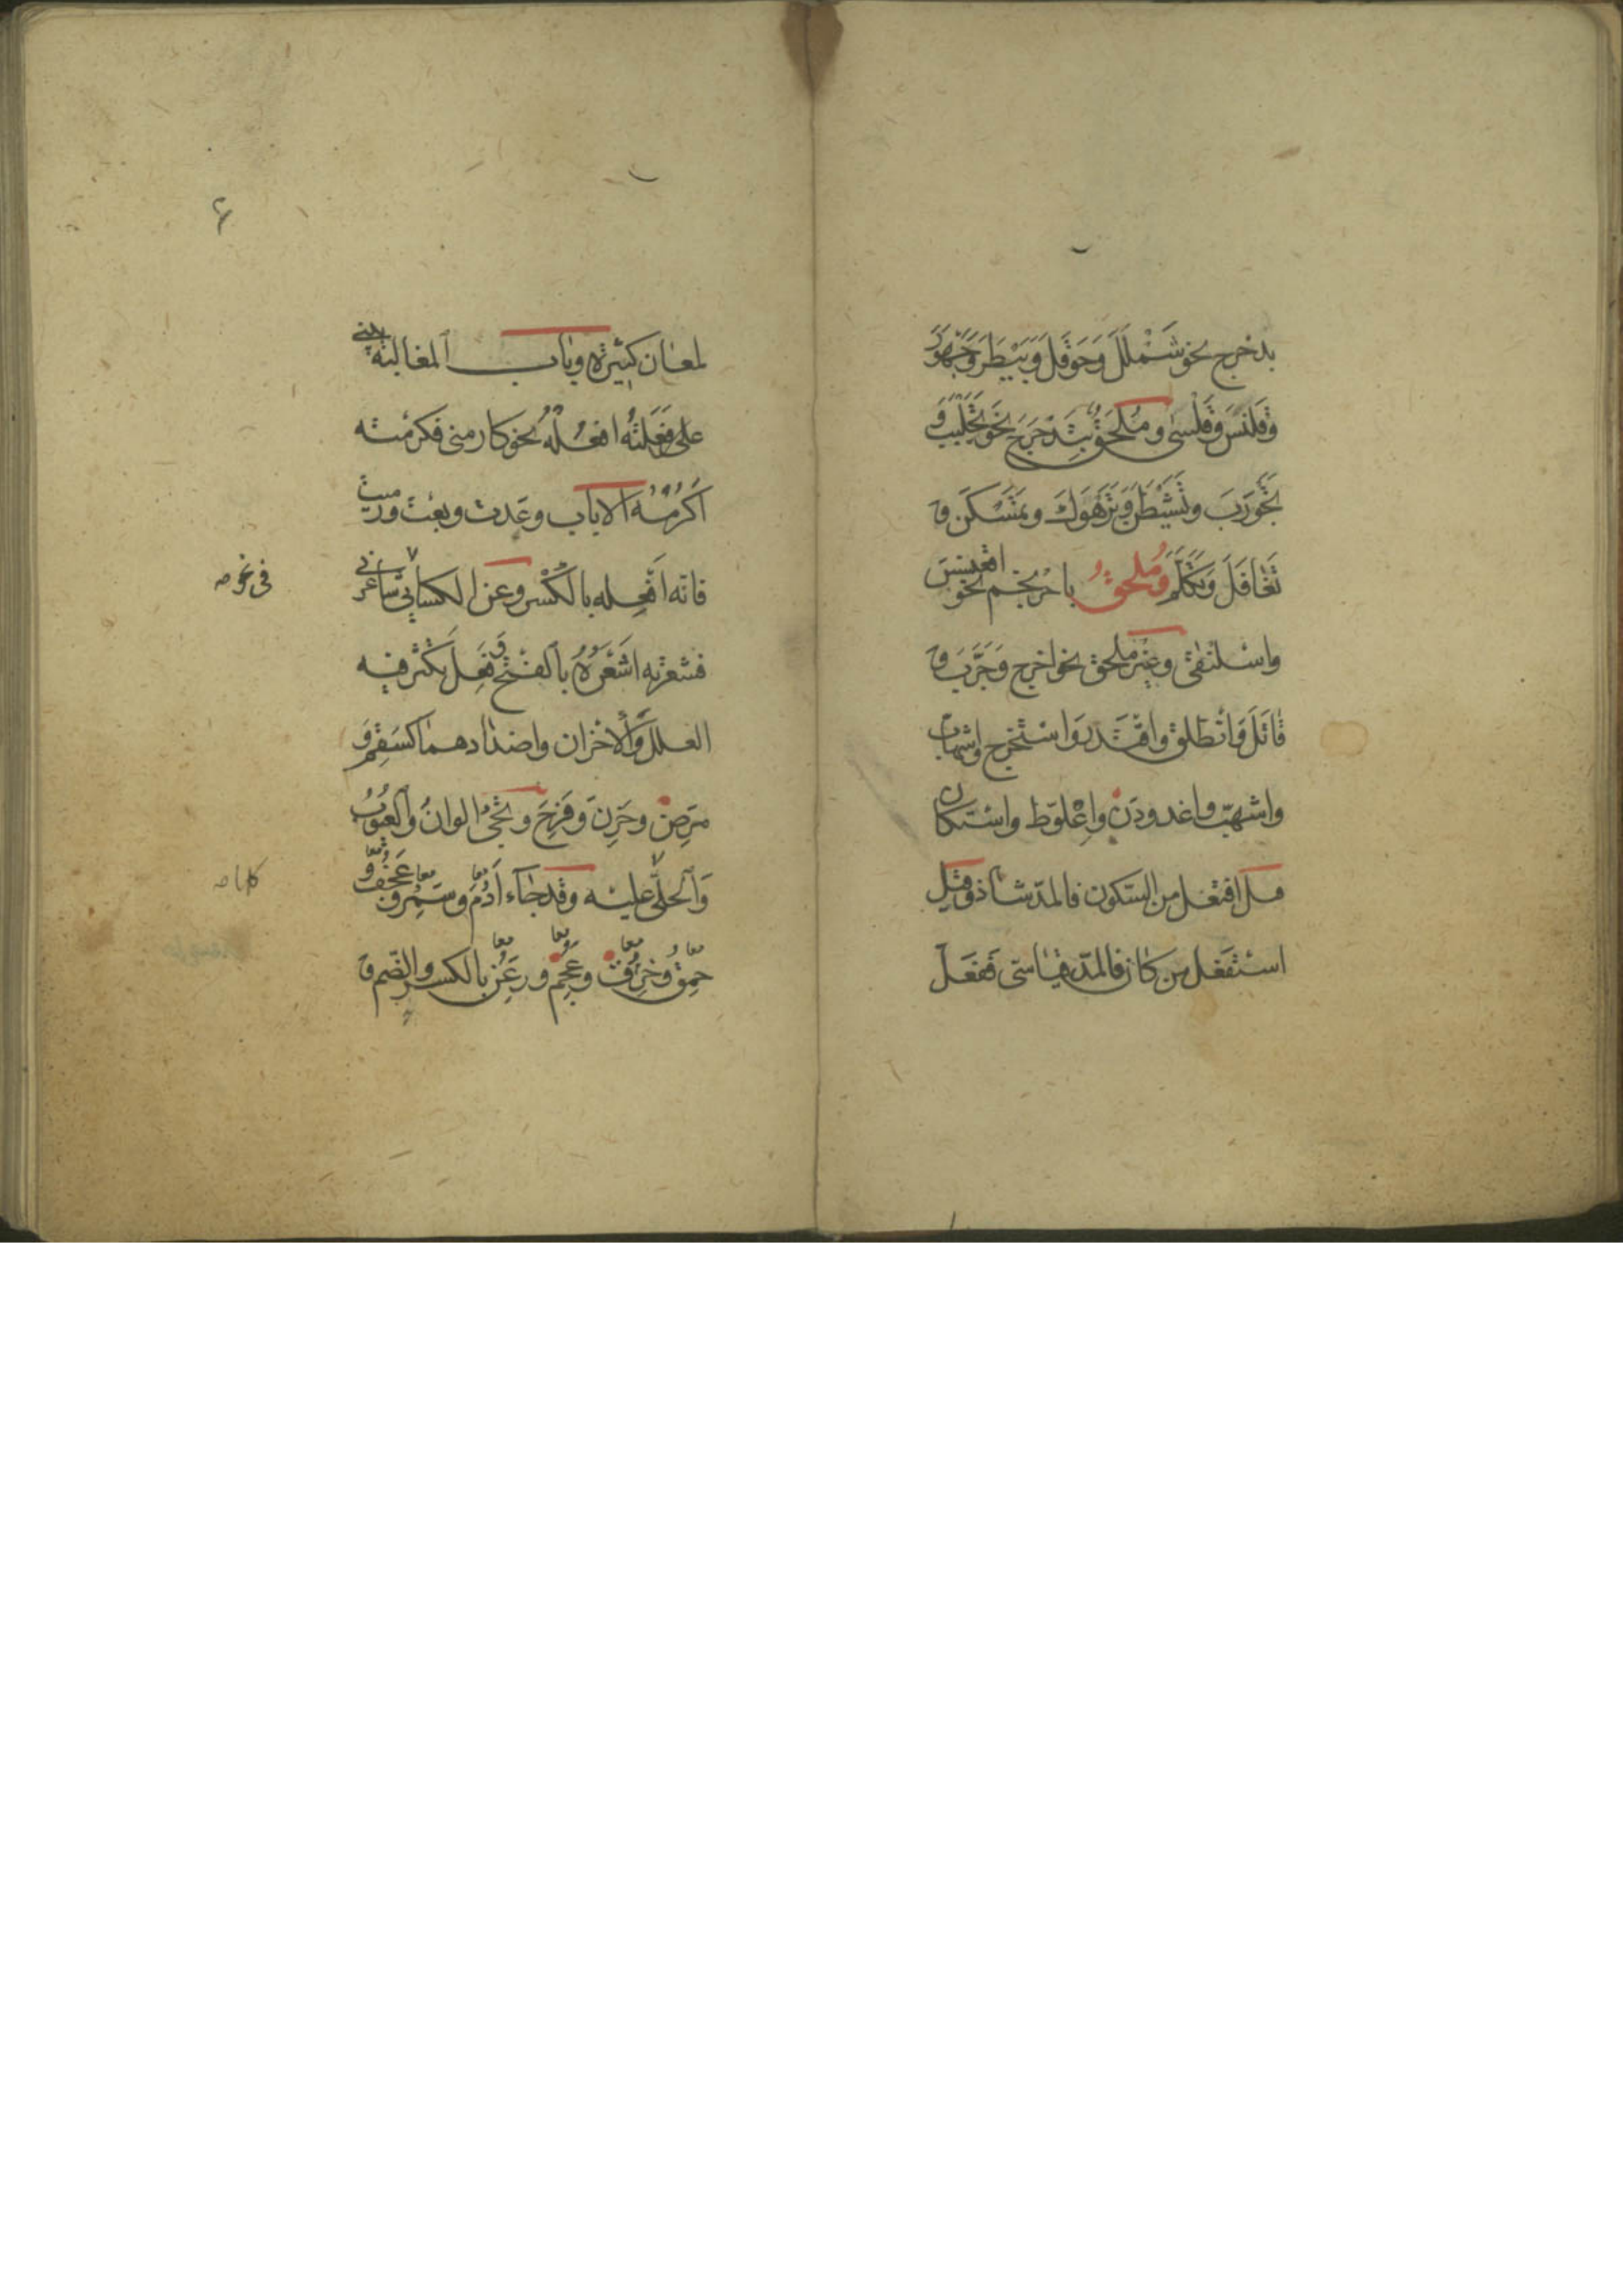 بدحرج نحو شَمْلَلَ وَحَوقَلَ وَبَيْطَرَ وَجَهْوَرَ
وَقَلْنَسَ وَقَلْسىٰ وَمُلحَقٌ بِتَدَحْرَجَ نحو تَجَلْبَبَ وَ
تَجَوْرَبَ وتَشَيْطَنَ وَتَرَهْوَكَ وتمَسْكَنَ و
تَغَافَلَ وَتَكَلَّمَ وَمُلحقٌ باحْرنجَمَ نحو اقعنسس
واسْلنقىٰ وغيْر ملحق نحو اخرج وَجَرَّبَ و
قاتَلَ وَانْطلق واقْتَدَرَ وَاسْتخْرج واشهابّ
واشهبّ واغدودَنَ واعْلوّط واسْتكان
قيل افتعل من السّكون فالمدّ شاذ وقيل
اسْتفعل من كان فالمدّ قياسىّ ففعَلَ
لمعان كثيرة وباب المغالبة يبنى
على فَعَلتُهُ افعُلُهُ نحو كارمنى فكرمته
اَكرُمُهُ الا باب وعَدت وبعْت ورميت
فانه اَفْعِله بالكَسْر وعن الكسائىّ فى شاعرنى
فشعرته اشعَرُهُ بالفتْح وفَعِلَ يكثر فيه
العلل وَالاحْزان واضدادهما كسَقِمَ و
مَرِضَ وحَزِنَ وَفَرِحَ ويجىُ الوانُ والعيُوبُ
وَالحلىٰ عليْه وقدجآء اَدُمَ وَسَمُرَ وعَجُفَ و
حمق وَخرق وعجم ورَعن بالكسر والضّم و
فى نحو صح